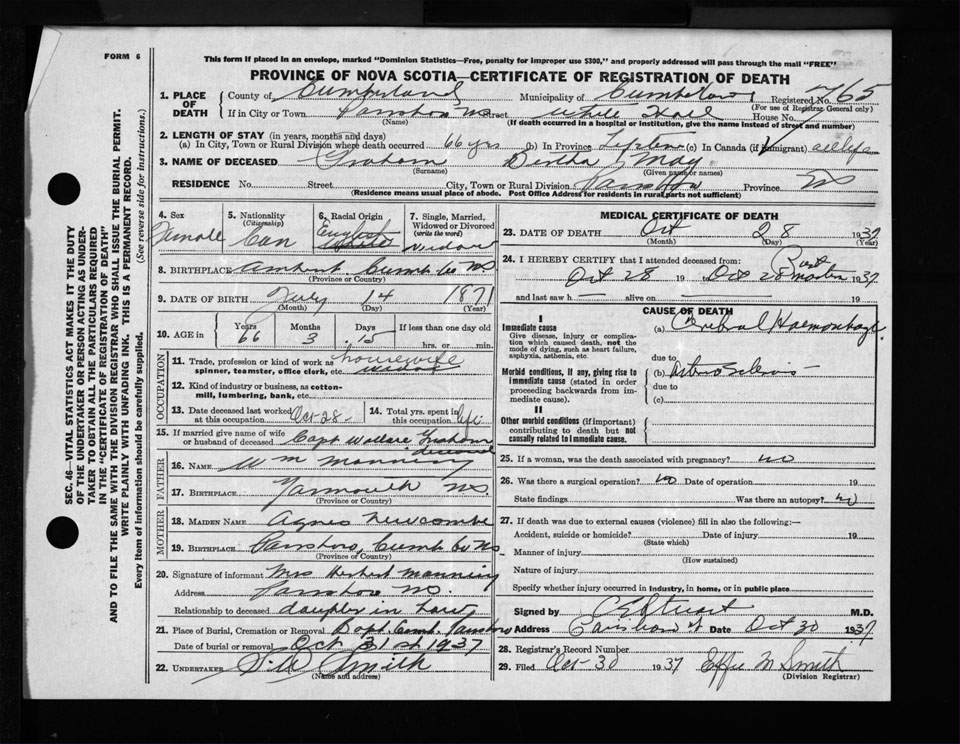 FORM 6
This form if placed in an envelope, marked "Dominion Statistics—Free, penalty for improper use $300," and properly addressed will pass through the mail "FREE"
PROVINCE OF NOVA SCOTIA—CERTIFICATE OF REGISTRATION OF DEATH
1. PLACE OF DEATH
County of Cumberland Municipality of Cumberland Registered No. 765
(For use of Registrar General only)
If in City or Town Parrsboro NS Street House No.
(Name) (If death occurred in a hospital or institution, give the name instead of street and number)
2. LENGTH OF STAY (in years, months and days)
(a) In City, Town or Rural Division where death occurred 66 yrs (b) In Province Lifetime (c) In Canada (if immigrant) all life
3. NAME OF DECEASED Graham Bertha May
(Surname) (Given name or names)
RESIDENCE No. Street City, Town or Rural Division Parrsboro Province NS
(Residence means usual place of abode. Post Office Address for residents in rural parts not sufficient)
SEC. 46—VITAL STATISTICS ACT MAKES IT THE DUTY
OF THE UNDERTAKER OR PERSON ACTING AS UNDER-
TAKER TO OBTAIN ALL THE PARTICULARS REQUIRED
IN THE "CERTIFICATE OF REGISTRATION OF DEATH"
AND TO FILE THE SAME WITH THE DIVISION REGISTRAR WHO SHALL ISSUE THE BURIAL PERMIT.
WRITE PLAINLY WITH UNFADING INK. THIS IS A PERMANENT RECORD.
Every item of information should be carefully supplied. (See reverse side for instructions.)
4. Sex Female
5. Nationality (Citizenship) Can
6. Racial Origin English
7. Single, Married, Widowed or Divorced (write the word) Widow
8. BIRTHPLACE Amherst Cumb Co NS
(Province or Country)
9. DATE OF BIRTH July 14 1871
(Month) (Day) (Year)
10. AGE in Years 66 Months 3 Days 15 If less than one day old hrs. or min.
OCCUPATION
11. Trade, profession or kind of work as spinner, teamster, office clerk, etc. housewife widow
12. Kind of industry or business, as cotton-mill, lumbering, bank, etc.
13. Date deceased last worked at this occupation Oct-28-
14. Total yrs. spent in this occupation life
15. If married give name of wife or husband of deceased Capt Graham
FATHER
16. NAME Wm Manning
17. BIRTHPLACE Yarmouth NS.
(Province or Country)
MOTHER
18. MAIDEN NAME Agnes Newcombe
19. BIRTHPLACE Parrsboro, Cumb Co NS.
(Province or Country)
20. Signature of informant Mrs Herbert Manning
Address Parrsboro NS.
Relationship to deceased daughter in law
21. Place of Burial, Cremation or Removal Bapt. Cemt. Parrsboro
Date of burial or removal Oct 31st 1937
22. UNDERTAKER Smith
(Name and address)
MEDICAL CERTIFICATE OF DEATH
23. DATE OF DEATH Oct 28 1937
(Month) (Day) (Year)
24. I HEREBY CERTIFY that I attended deceased from: Post mortem
Oct 28 19 Oct 28 1937
and last saw h alive on 19
CAUSE OF DEATH
I
Immediate cause
Give disease, injury or complication which caused death, not the mode of dying, such as heart failure, asphyxia, asthenia, etc.
(a) Cerebral Haemorrhage
due to
Morbid conditions, if any, giving rise to immediate cause (stated in order proceeding backwards from immediate cause).
(b) Arterio Sclerosis
due to
(c)
II
Other morbid conditions (if important) contributing to death but not causally related to immediate cause.
25. If a woman, was the death associated with pregnancy? no
26. Was there a surgical operation? no Date of operation 19
State findings Was there an autopsy? no
27. If death was due to external causes (violence) fill in also the following:—
Accident, suicide or homicide? Date of injury 19
(State which)
Manner of injury
(How sustained)
Nature of injury
Specify whether injury occurred in industry, in home, or in public place
Signed by Stuart M.D.
Address Parrsboro Date Oct 30 1937
28. Registrar's Record Number
29. Filed Oct-30 1937 Effie M Smith
(Division Registrar)